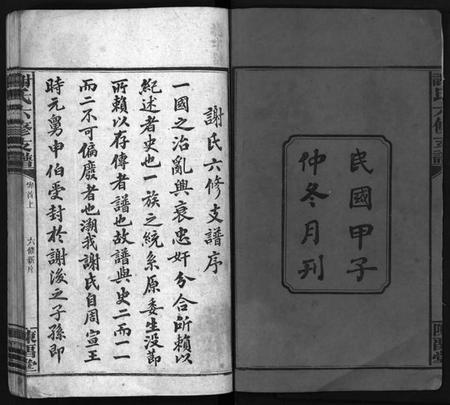 民國甲子
仲冬月刊
謝氏六修支譜序
一國之治亂興衰忠奸分合所賴以
紀述者史也一族之統系原委生没節
所賴以存傳者譜也故譜與史二而一一
而二不可偏廢者也溯我謝氏自周宣王
時元舅申伯受封於謝後之子孫即
謝氏六修支譜
卷首上
六修新序
謝氏六修支譜